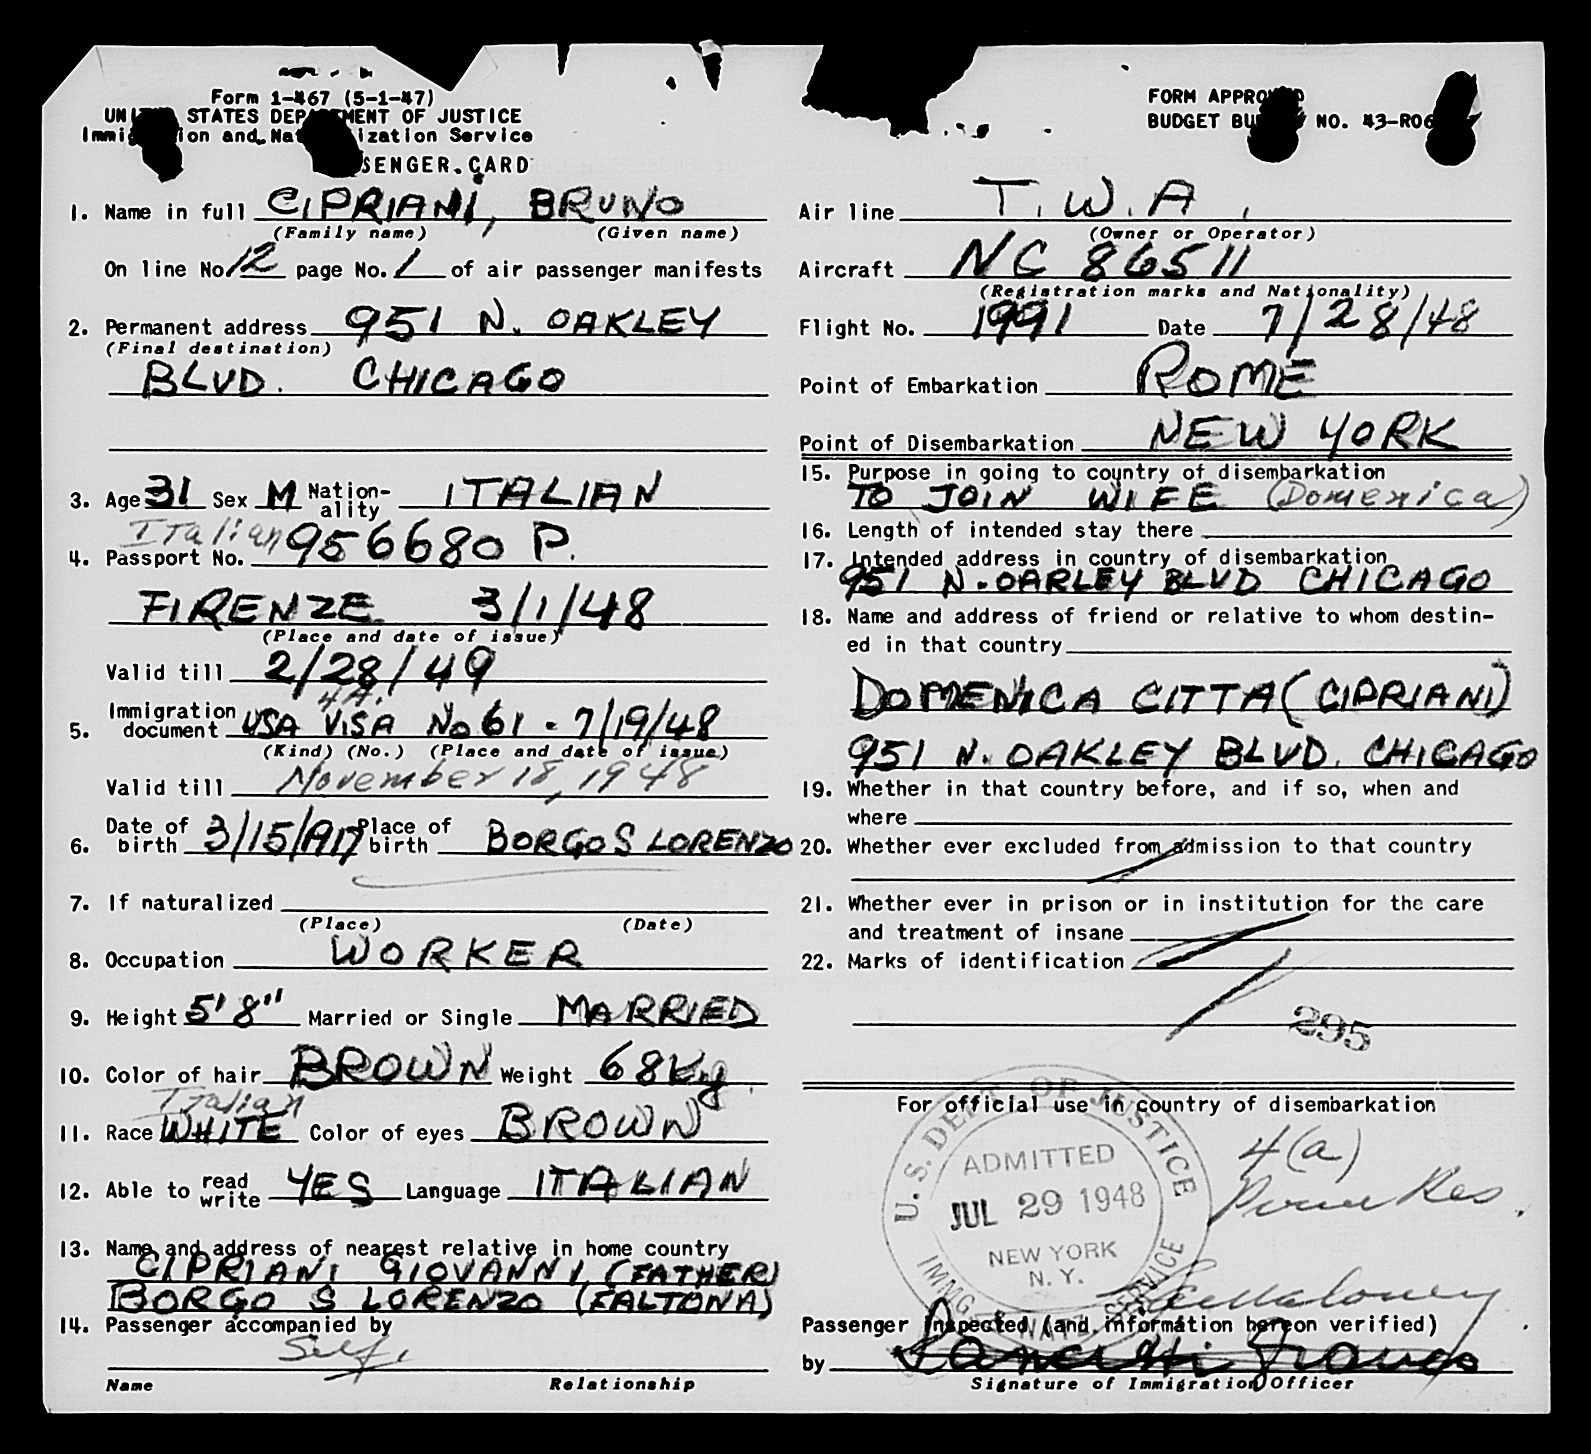 Form 1-467 (5-1-47)
STATES DEP MENT OF JUSTICE
Immig ion and Nat ization Service
SENGER CARD
FORM APPROVED
BUDGET BU NO. 43-R06
1. Name in full CIPRIANI, BRUNO
(Family name) (Given name)
On line No. 12 page No. 1 of air passenger manifests
2. Permanent address 951 N. OAKLEY
(Final destination)
BLVD. CHICAGO
3. Age 31 Sex M Nation-ality ITALIAN
Italian
4. Passport No. 956680 P.
FIRENZE 3/1/48
(Place and date of issue)
Valid till 2/28/49
4A.
5. Immigration document USA VISA No 61 - 7/19/48
(Kind) (No.) (Place and date of issue)
Valid till November 18, 1948
6. Date of birth 3/15/917 Place of birth BORGO S LORENZO
7. If naturalized
(Place) (Date)
8. Occupation WORKER
9. Height 5'8" Married or Single MARRIED
10. Color of hair BROWN Weight 68 Kg.
Italian
11. Race WHITE Color of eyes BROWN
12. Able to read write YES Language ITALIAN
13. Name and address of nearest relative in home country
CIPRIANI GIOVANNI (FATHER)
BORGO S LORENZO (FALTONA)
14. Passenger accompanied by
Self
Name Relationship
Air line T.W.A.
(Owner or Operator)
Aircraft NC 86511
(Registration marks and Nationality)
Flight No. 1991 Date 7/28/48
Point of Embarkation ROME
Point of Disembarkation NEW YORK
15. Purpose in going to country of disembarkation
TO JOIN WIFE (Domenica)
16. Length of intended stay there
17. Intended address in country of disembarkation
951 N. OARLEY BLVD CHICAGO
18. Name and address of friend or relative to whom destin-
ed in that country
DOMENICA CITTA (CIPRIANI)
951 N. OAKLEY BLVD. CHICAGO
19. Whether in that country before, and if so, when and
where
20. Whether ever excluded from admission to that country
21. Whether ever in prison or in institution for the care
and treatment of insane
22. Marks of identification
295
For official use in country of disembarkation
U.S. DEPT. OF JUSTICE
ADMITTED
JUL 29 1948
NEW YORK
N. Y.
IMMIG. NATZ. SERVICE
4(a)
Passenger inspected (and information hereon verified)
by
Signature of Immigration Officer